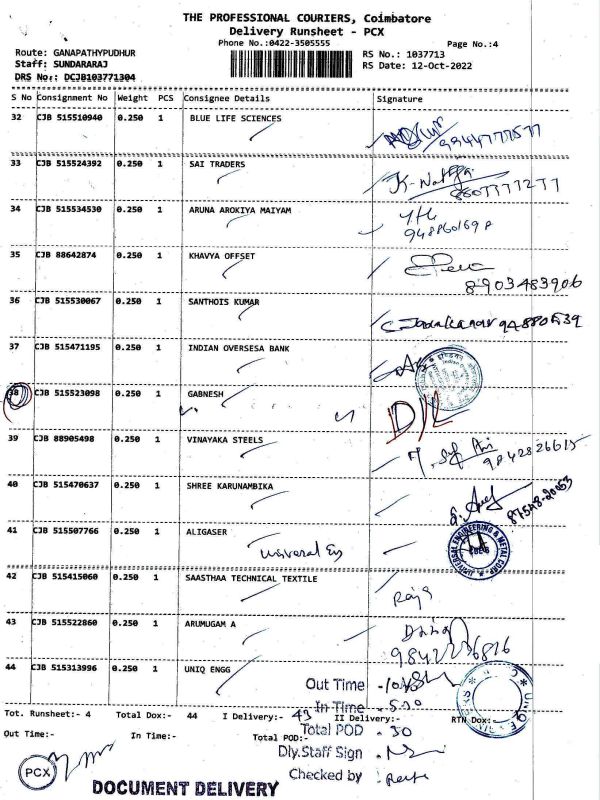 THE PROFESSIONAL COURIERS, Coimbatore
Delivery Runsheet - PCX
Phone No.:0422-3505555
Page No.:4
Route: GANAPATHYPUDHUR
Staff: SUNDARARAJ
DRS No: DCJB103771304
RS No.: 1037713
RS Date: 12-Oct-2022
S No Consignment No Weight PCS Consignee Details Signature
32 CJB 515510940 0.250 1 BLUE LIFE SCIENCES
9944777577
33 CJB 515524392 0.250 1 SAI TRADERS
34 CJB 515534530 0.250 1 ARUNA AROKIYA MAIYAM
35 CJB 88642874 0.250 1 KHAVYA OFFSET
8903483906
36 CJB 515530067 0.250 1 SANTHOIS KUMAR
37 CJB 515471195 0.250 1 INDIAN OVERSESA BANK
38 CJB 515523098 0.250 1 GABNESH
D/L
39 CJB 88905498 0.250 1 VINAYAKA STEELS
9842826615
40 CJB 515470637 0.250 1 SHREE KARUNAMBIKA
87548-20053
41 CJB 515507766 0.250 1 ALIGASER
UNIVERSAL ENGINEERING & METAL CORP
42 CJB 515415060 0.250 1 SAASTHAA TECHNICAL TEXTILE
Raja
43 CJB 515522860 0.250 1 ARUMUGAM A
44 CJB 515313996 0.250 1 UNIQ ENGG
Out Time
In Time -
Tot. Runsheet:- 4 Total Dox:- 44 I Delivery:- 43 II Delivery:- RTN Dox:-
Total POD . 30
Out Time:- In Time:- Total POD:-
Dly.Staff Sign
Checked by
PCX
DOCUMENT DELIVERY